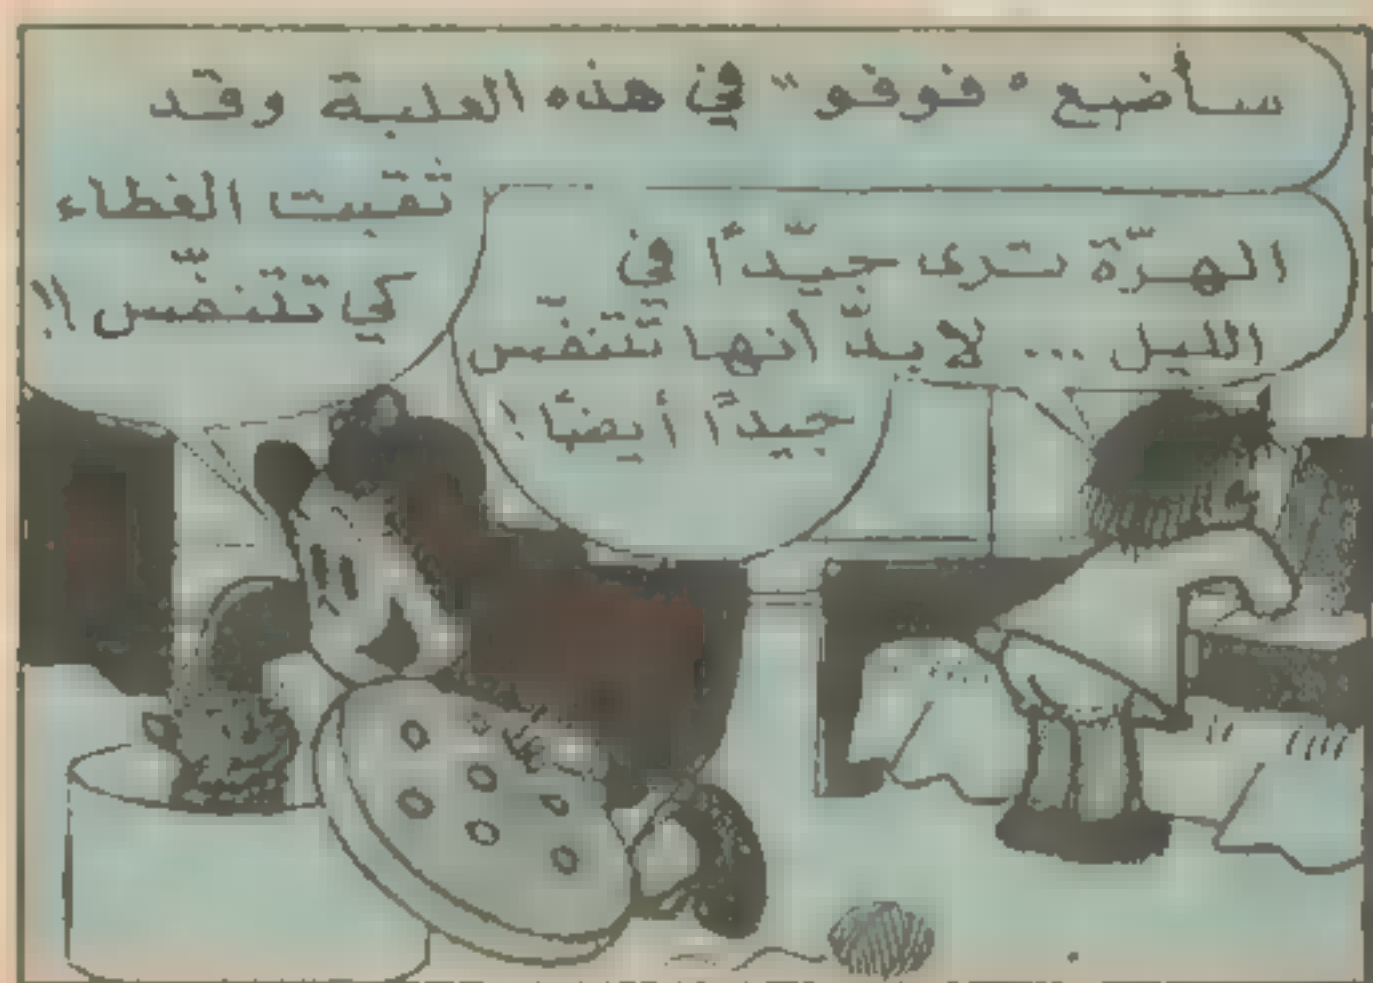 سأضع "فوفو" في هذه العلبة وقد
ثقبت الغطاء
كي تتنفّس !!
الهرّة ترى جيّدًا في
الليل ... لابدّ أنها تتنفّس
جيدًا أيضًا